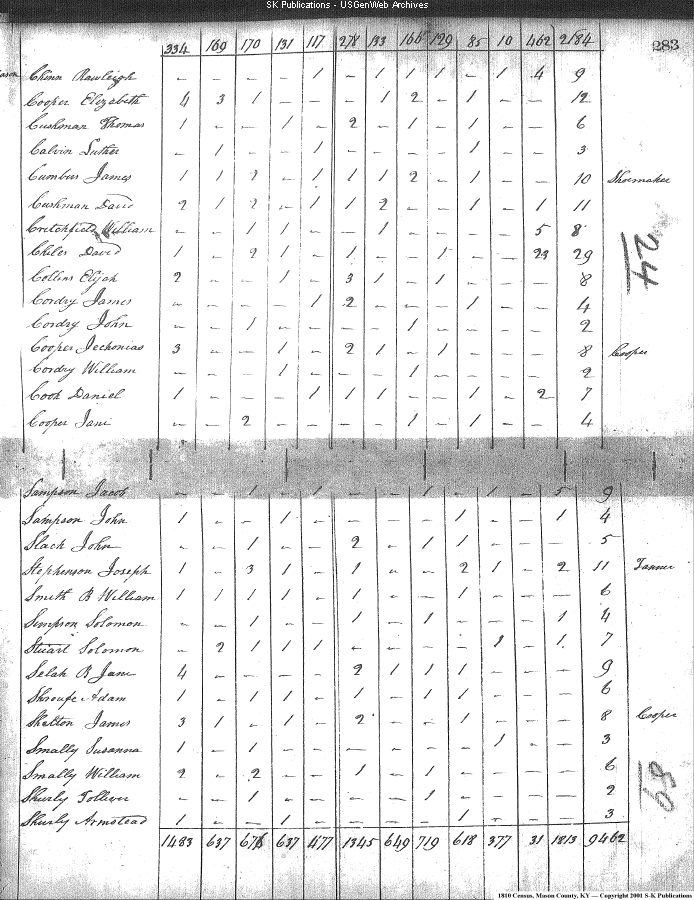 SK Publications - USGenWeb Archives
334 169 170 131 117 278 133 166 129 85 10 462 2184
283
Chinn Rawleigh - - - - 1 - 1 1 1 - 1 4 9
Cooper Elizabeth 4 3 1 - - - 1 2 - 1 - - 12
Cushman Thomas 1 - - 1 - 2 - 1 - 1 - - 6
Calvin Luther - 1 - - 1 - - - - 1 - - 3
Cumbus James 1 1 2 - 1 1 1 2 - 1 - - 10 Shoemaker
Cushman David 2 1 2 - 1 1 2 - - 1 - 1 11
Critchfield William - - 1 1 - - 1 - - - - 5 8
Chiles David 1 - 2 1 - 1 - - 1 - - 23 29
24
Collins Elijah 2 - - 1 - 3 1 - 1 - - - 8
Cordry James - - - - 1 2 - - - 1 - - 4
Cordry John - - 1 - - - - 1 - - - - 2
Cooper Jechonias 3 - - 1 - 2 1 - 1 - - - 8 Cooper
Cordry William - - - 1 - - - 1 - - - - 2
Cook Daniel 1 - - - 1 1 1 - - 1 - 2 7
Cooper Jane - - 2 - - - - 1 - 1 - - 4
Sampson Jacob - - 1 - 1 - - - 1 - 1 - 5 9
Sampson John 1 - - 1 - - - - 1 - - 1 4
Slack John - - 1 - - 2 - 1 1 - - - 5
Stephenson Joseph 1 - 3 1 - 1 - - 2 1 - 2 11 Tanner
Smith B William 1 1 1 1 - 1 - - 1 - - - 6
Simpson Solomon - - 1 - - 1 - 1 - - - 1 4
Stuart Solomon - 2 1 1 1 - - - - 1 - 1 7
Selah B Jane 4 - - - - 2 1 1 1 - - - 9
Shroufe Adam 1 - 1 1 - 1 - 1 1 - - - 6
Skelton James 3 1 - 1 - 2 - - 1 - - - 8 Cooper
Smally Susanna 1 - 1 - - - - - - 1 - - 3
Smally William 2 - 2 - - 1 - 1 - - - - 6
Shurly Tolliver - - 1 - - - - 1 - - - - 2
Shurly Armstead 1 - - 1 - - - - 1 - - - 3
1483 637 676 637 477 1345 649 719 618 377 31 1813 9462
1810 Census, Mason County, KY — Copyright 2001 S-K Publications